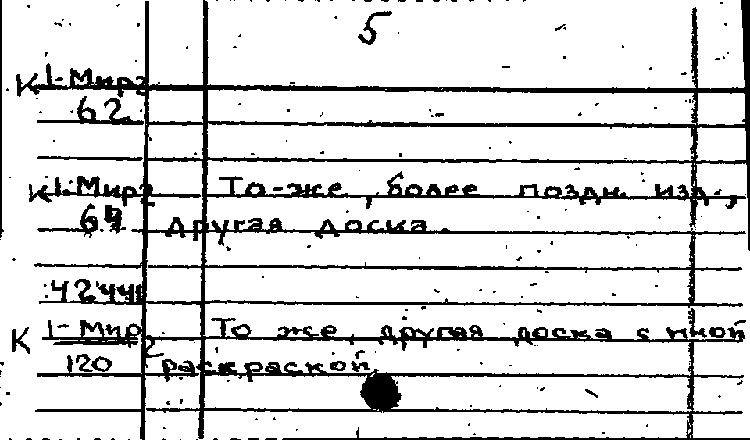 5
К 1-Мир2
62
К 1-Мир2 То-же, более поздн. изд.,
другая доска.
42441
К 1-Мир2 То же, другая доска с иной
120 раскраской